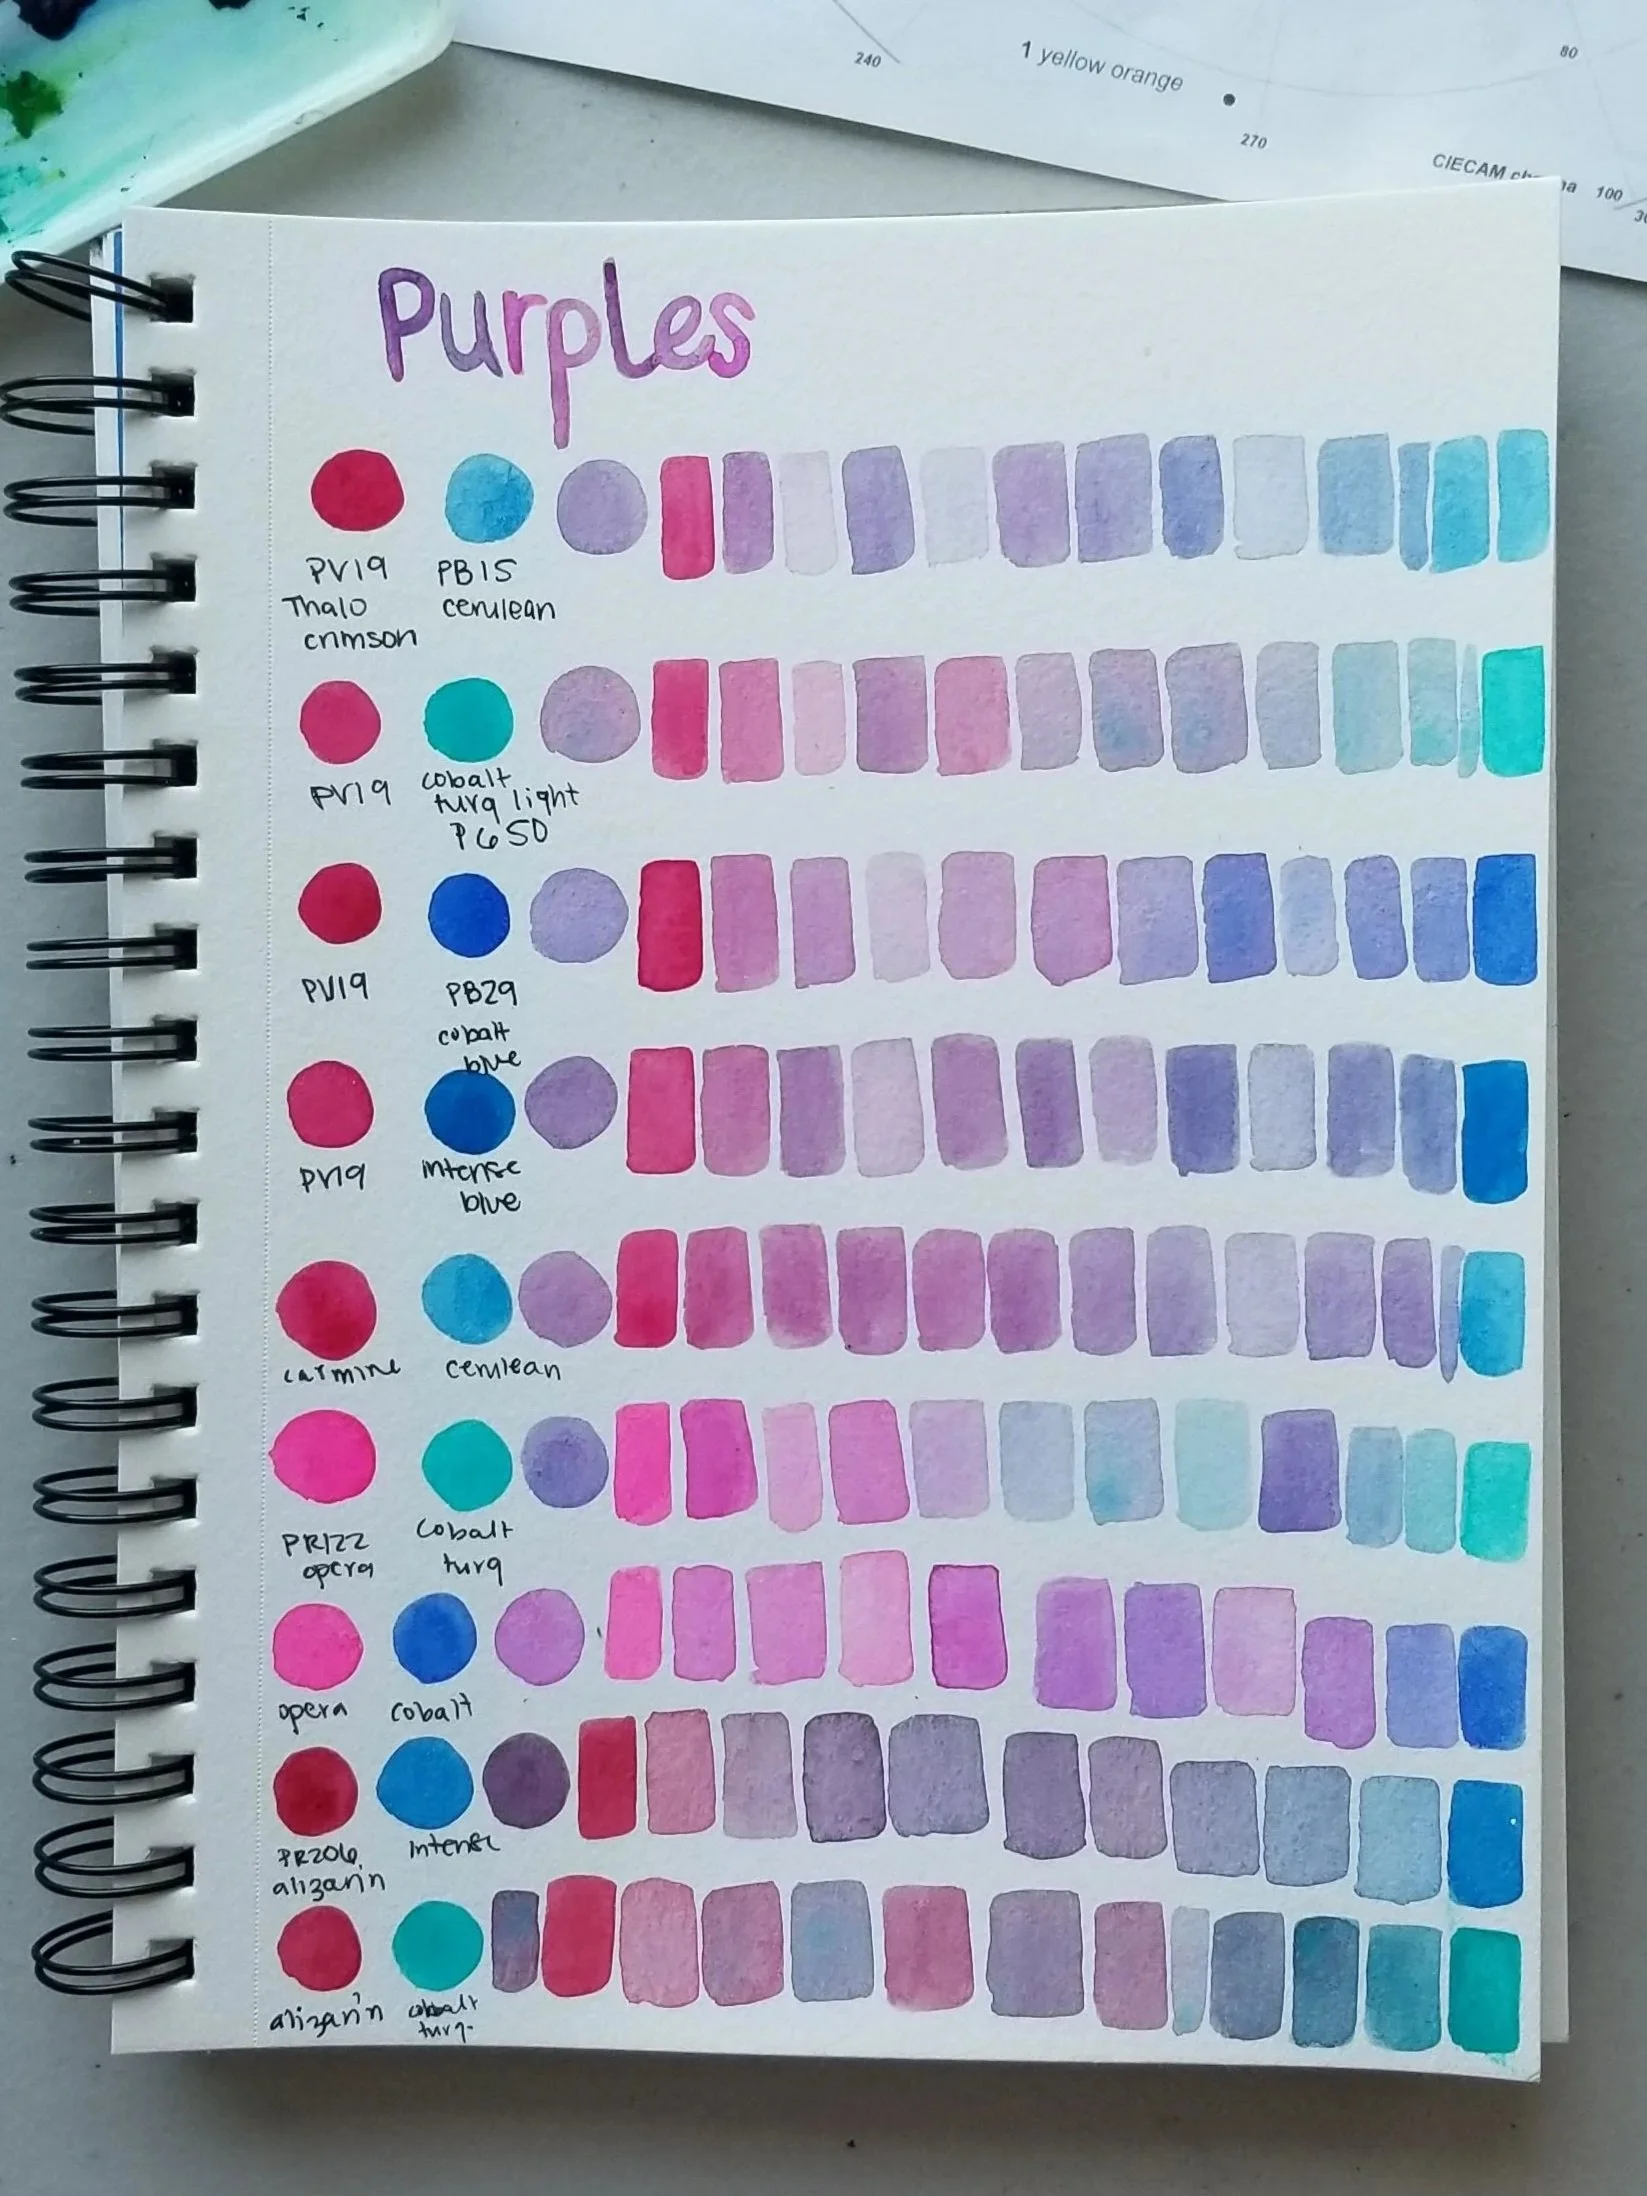 240
1 yellow orange
80
270
CIECAM
100
Purples
PV19
Thalo
crimson
PB15
cerulean
PV19
cobalt
turq light
PG50
PV19
PB29
cobalt
blue
PV19
intense
blue
carmine
cerulean
PR122
opera
cobalt
turq
opera
cobalt
PR206
alizarin
intense
alizarin
cobalt
turq.